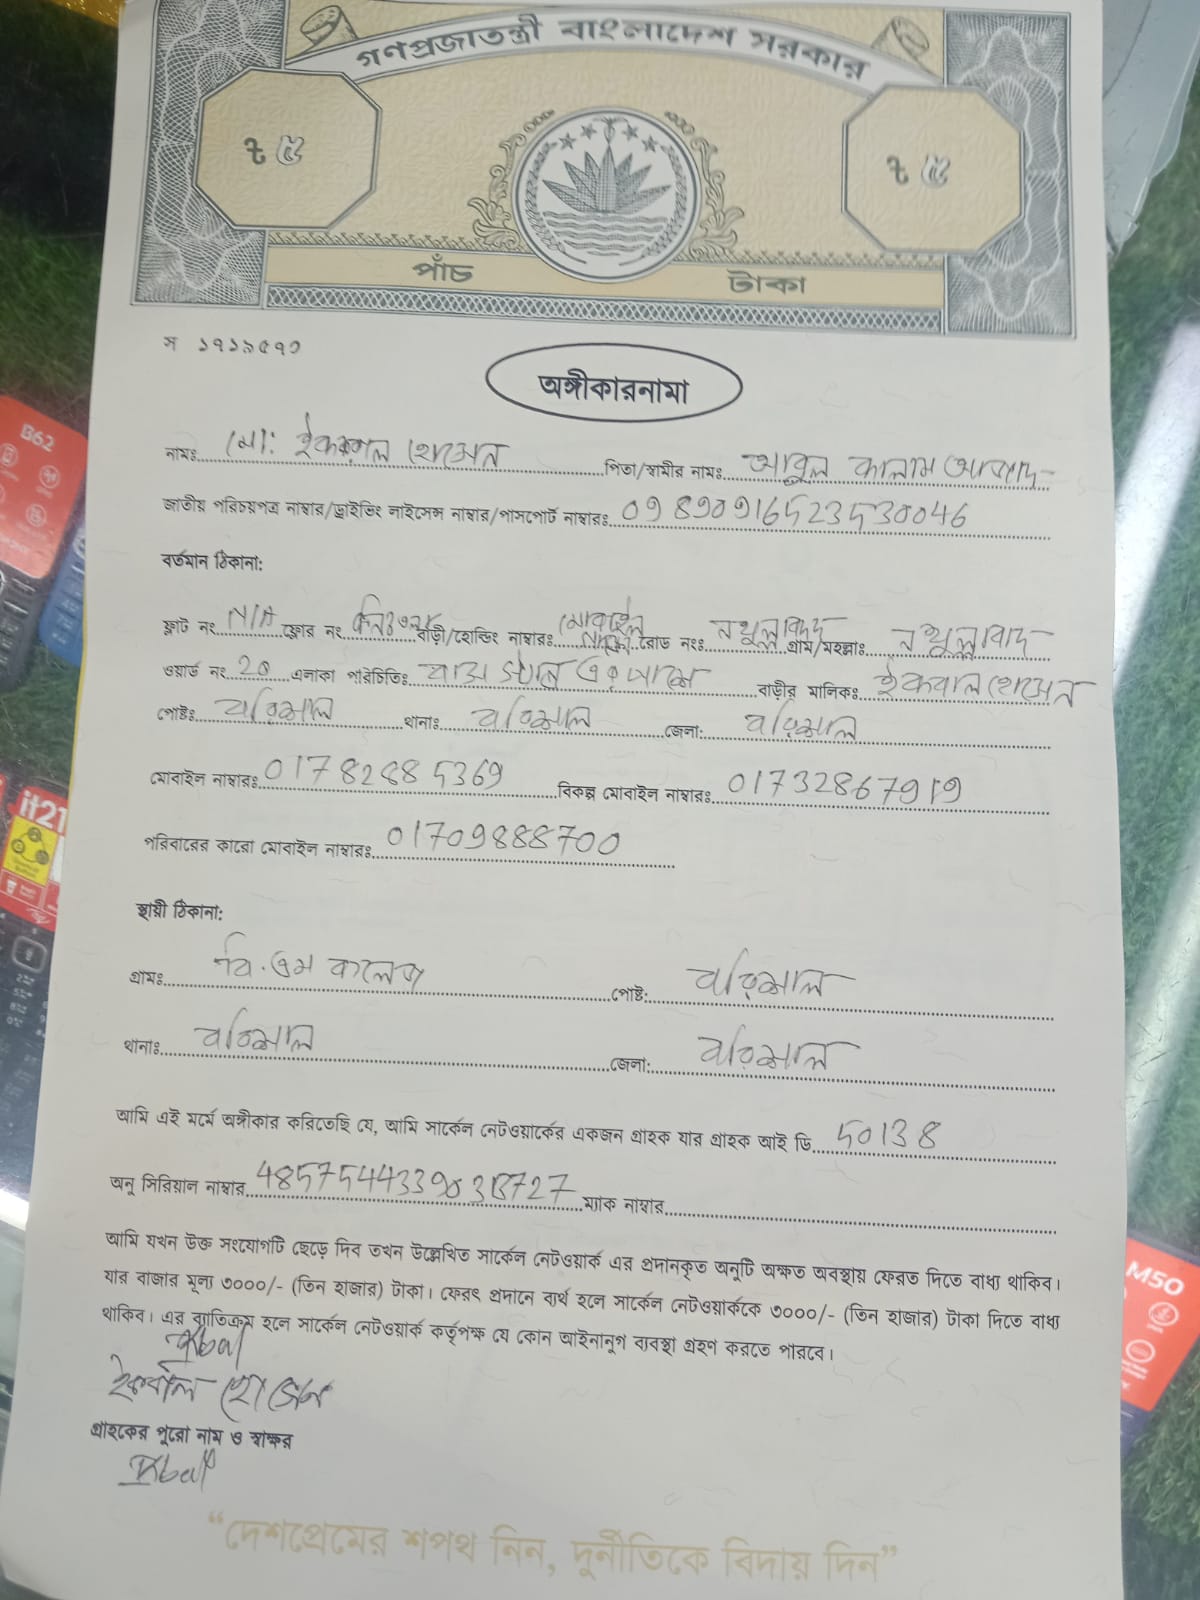 গণপ্রজাতন্ত্রী বাংলাদেশ সরকার
৳ ৫ ৳ ৫
পাঁচ টাকা
স ১৭১৯৫৭০
অঙ্গীকারনামা
নামঃ মো: ইকবাল হোসেন পিতা/স্বামীর নামঃ আবুল কালাম আজাদ
জাতীয় পরিচয়পত্র নাম্বার/ড্রাইভিং লাইসেন্স নাম্বার/পাসপোর্ট নাম্বারঃ 09890916523530046
বর্তমান ঠিকানা:
ফ্লাট নং N/A ফ্লোর নং বাড়ী/হোল্ডিং নাম্বারঃ রোড নংঃ নথুল্লাবাদ গ্রাম/মহল্লাঃ নথুল্লাবাদ
ওয়ার্ড নং 20 এলাকা পরিচিতিঃ বাড়ীর মালিকঃ ইকবাল হোসেন
পোষ্টঃ বরিশাল থানাঃ বরিশাল জেলা: বরিশাল
মোবাইল নাম্বারঃ 01782885369 বিকল্প মোবাইল নাম্বারঃ 01732867919
পরিবারের কারো মোবাইল নাম্বারঃ 01709888700
স্থায়ী ঠিকানা:
গ্রামঃ বি.এম কলেজ পোষ্ট: বরিশাল
থানাঃ বরিশাল জেলা: বরিশাল
আমি এই মর্মে অঙ্গীকার করিতেছি যে, আমি সার্কেল নেটওয়ার্কের একজন গ্রাহক যার গ্রাহক আই ডি 50138
অনু সিরিয়াল নাম্বার ম্যাক নাম্বার
আমি যখন উক্ত সংযোগটি ছেড়ে দিব তখন উল্লেখিত সার্কেল নেটওয়ার্ক এর প্রদানকৃত অনুটি অক্ষত অবস্থায় ফেরত দিতে বাধ্য থাকিব।
যার বাজার মূল্য ৩০০০/- (তিন হাজার) টাকা। ফেরৎ প্রদানে ব্যর্থ হলে সার্কেল নেটওয়ার্ককে ৩০০০/- (তিন হাজার) টাকা দিতে বাধ্য
থাকিব। এর ব্যতিক্রম হলে সার্কেল নেটওয়ার্ক কর্তৃপক্ষ যে কোন আইনানুগ ব্যবস্থা গ্রহণ করতে পারবে।
ইকবাল হোসেন
গ্রাহকের পুরো নাম ও স্বাক্ষর
“দেশপ্রেমের শপথ নিন, দুর্নীতিকে বিদায় দিন”
B62
it21
M50